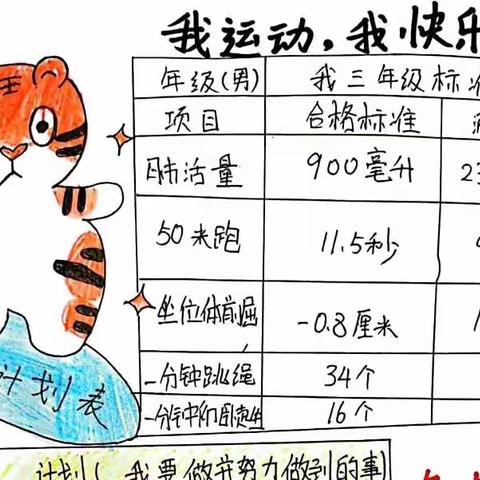 我运动,我快乐
年级(男) 我三年级标准
项目 合格标准
肺活量 900毫升 23
50米跑 11.5秒
坐位体前屈 -0.8厘米
一分钟跳绳 34个
一分钟仰卧起坐 16个
计划表
计划(我要做并努力做到的事)